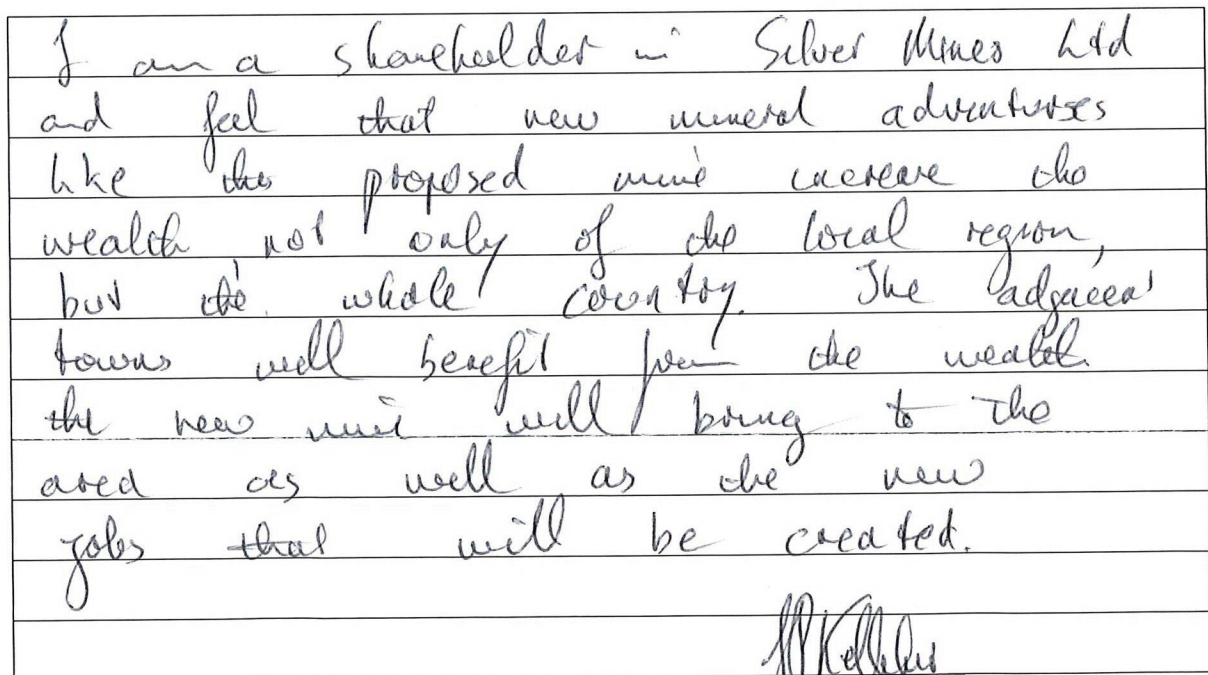 I am a shareholder in Silver Mines Ltd
and feel that new mineral adventurses
like the proposed mine increase the
wealth, not only of the local region,
but the whole country. The adjacent
towns will benefit from the wealth
the new mine will bring to the
area as well as the new
jobs that will be created.